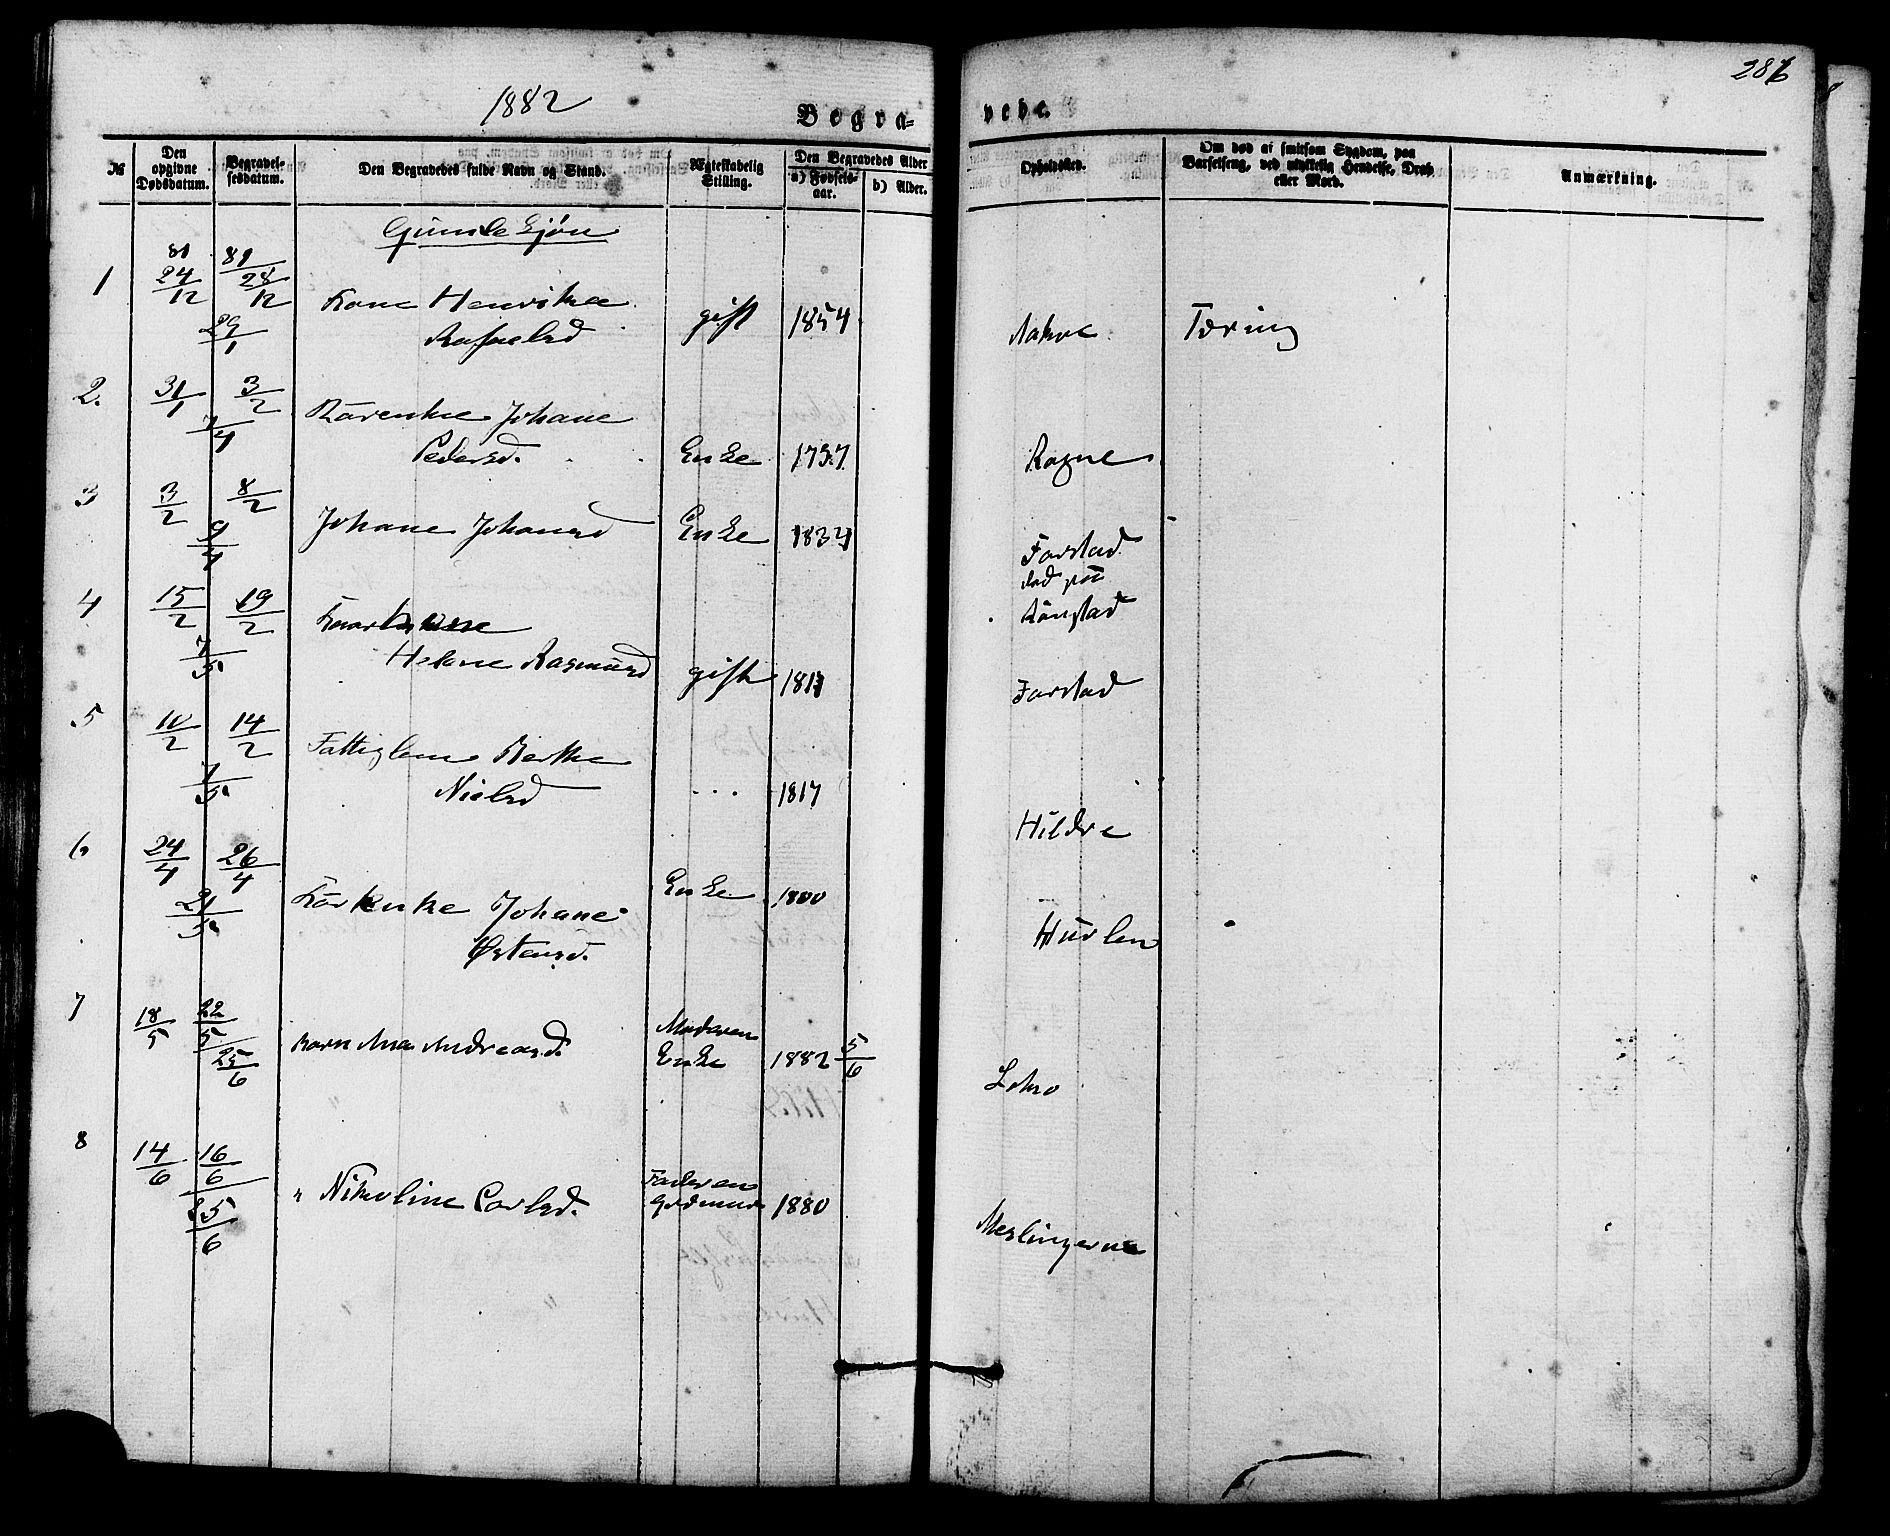 1882
Begra=
vede.
286
№
Den opgivne Dødsdatum.
Begravelsesdatum.
Den Begravedes fulde Navn og Stand.
Ægteskabelig Stilling.
Den Begravedes Alder
a) Fødselsaar.
b) Alder.
Opholdssted.
Om død af smitsom Sygdom, paa Barselseng, ved ulykkelig Hendelse, Drab eller Mord.
Anmærkning.
1
81 24/12
81 28/12
29/1
Kone
gift
1854
Tæring
2.
31/1
3/2
7/4
Johane
Pedersd.
Enke
Rogne
3
3/2
8/2
9/4
Johane Johansd
Enke
1834
Farstad
4
15/2
19/2
7/5
Helene Rasmusd
gift
Farstad
5
10/2
14/2
7/5
Fattiglem Berthe
Nielsd
...
1817
Hildre
6
24/4
26/4
21/5
Johane
Østensd.
Enke
1800
Hurlen
7
18/5
22/5
25/6
Barn Ana Andreasd.
Moderen
Enke
1882
5/6
8
14/6
16/6
25/6
" Nikoline Carlsd.
Faderen
1880